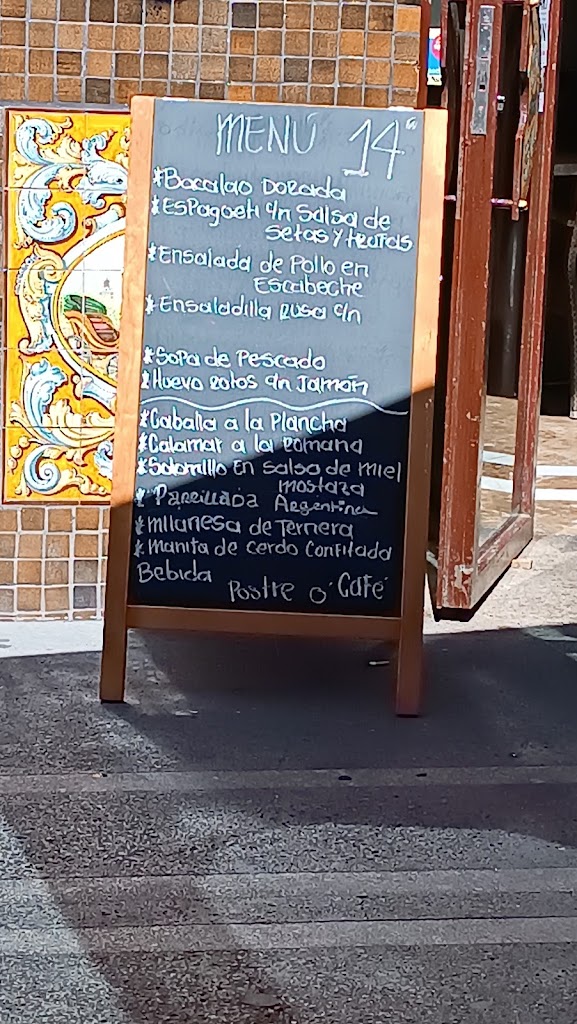 MENÚ 14€
*Bacalao Dorada
*Espagoeti c/n Salsa de
Setas y trufas
*Ensalada de Pollo en
Escabeche
*Ensaladilla Rusa c/n
*Sopa de Pescado
*Huevo Rotos c/n Jamón
*Caballa a la Plancha
*Calamar a la Romana
*Solomillo En Salsa de miel
mostaza
* Parrillada Argentina
*Milanesa de Ternera
*Manita de Cerdo Confitada
Bebida Postre o' Café